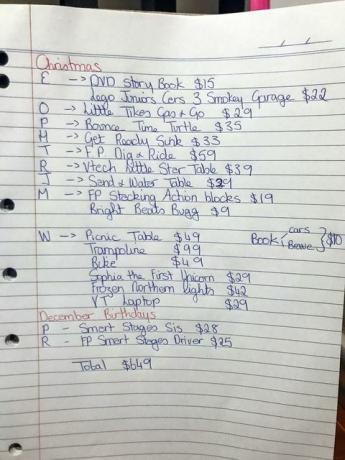 Christmas
E -> DVD Story Book $15
Lego Juniors Cars 3 Smokey Garage $22
O -> Little Tikes Gas & Go $29
P -> Bounce Time Turtle $35
H -> Get Ready Sink $33
T -> F P Dig & Ride $59
R -> Vtech Kittle Star Table $39
J -> Sand & Water Table $29
M -> FP Stacking Action blocks $19
Bright Beats Bugg $9
W -> Picnic Table $49 Book { cars Brave } $10
Trampoline $99
Bike $49
Sophia the First Unicorn $29
Frozen Northern Lights $42
VT Laptop $29
December Birthdays
P - Smart Stages Sis $28
R - FP Smart Stages Driver $25
Total $649